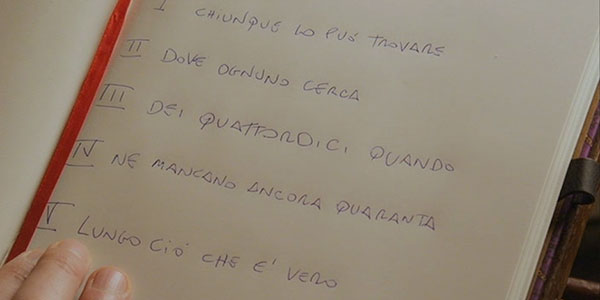 I CHIUNQUE LO PUÓ TROVARE
II DOVE OGNUNO CERCA
III DEI QUATTORDICI QUANDO
IV NE MANCANO ANCORA QUARANTA
V LUNGO CIÓ CHE E' VERO